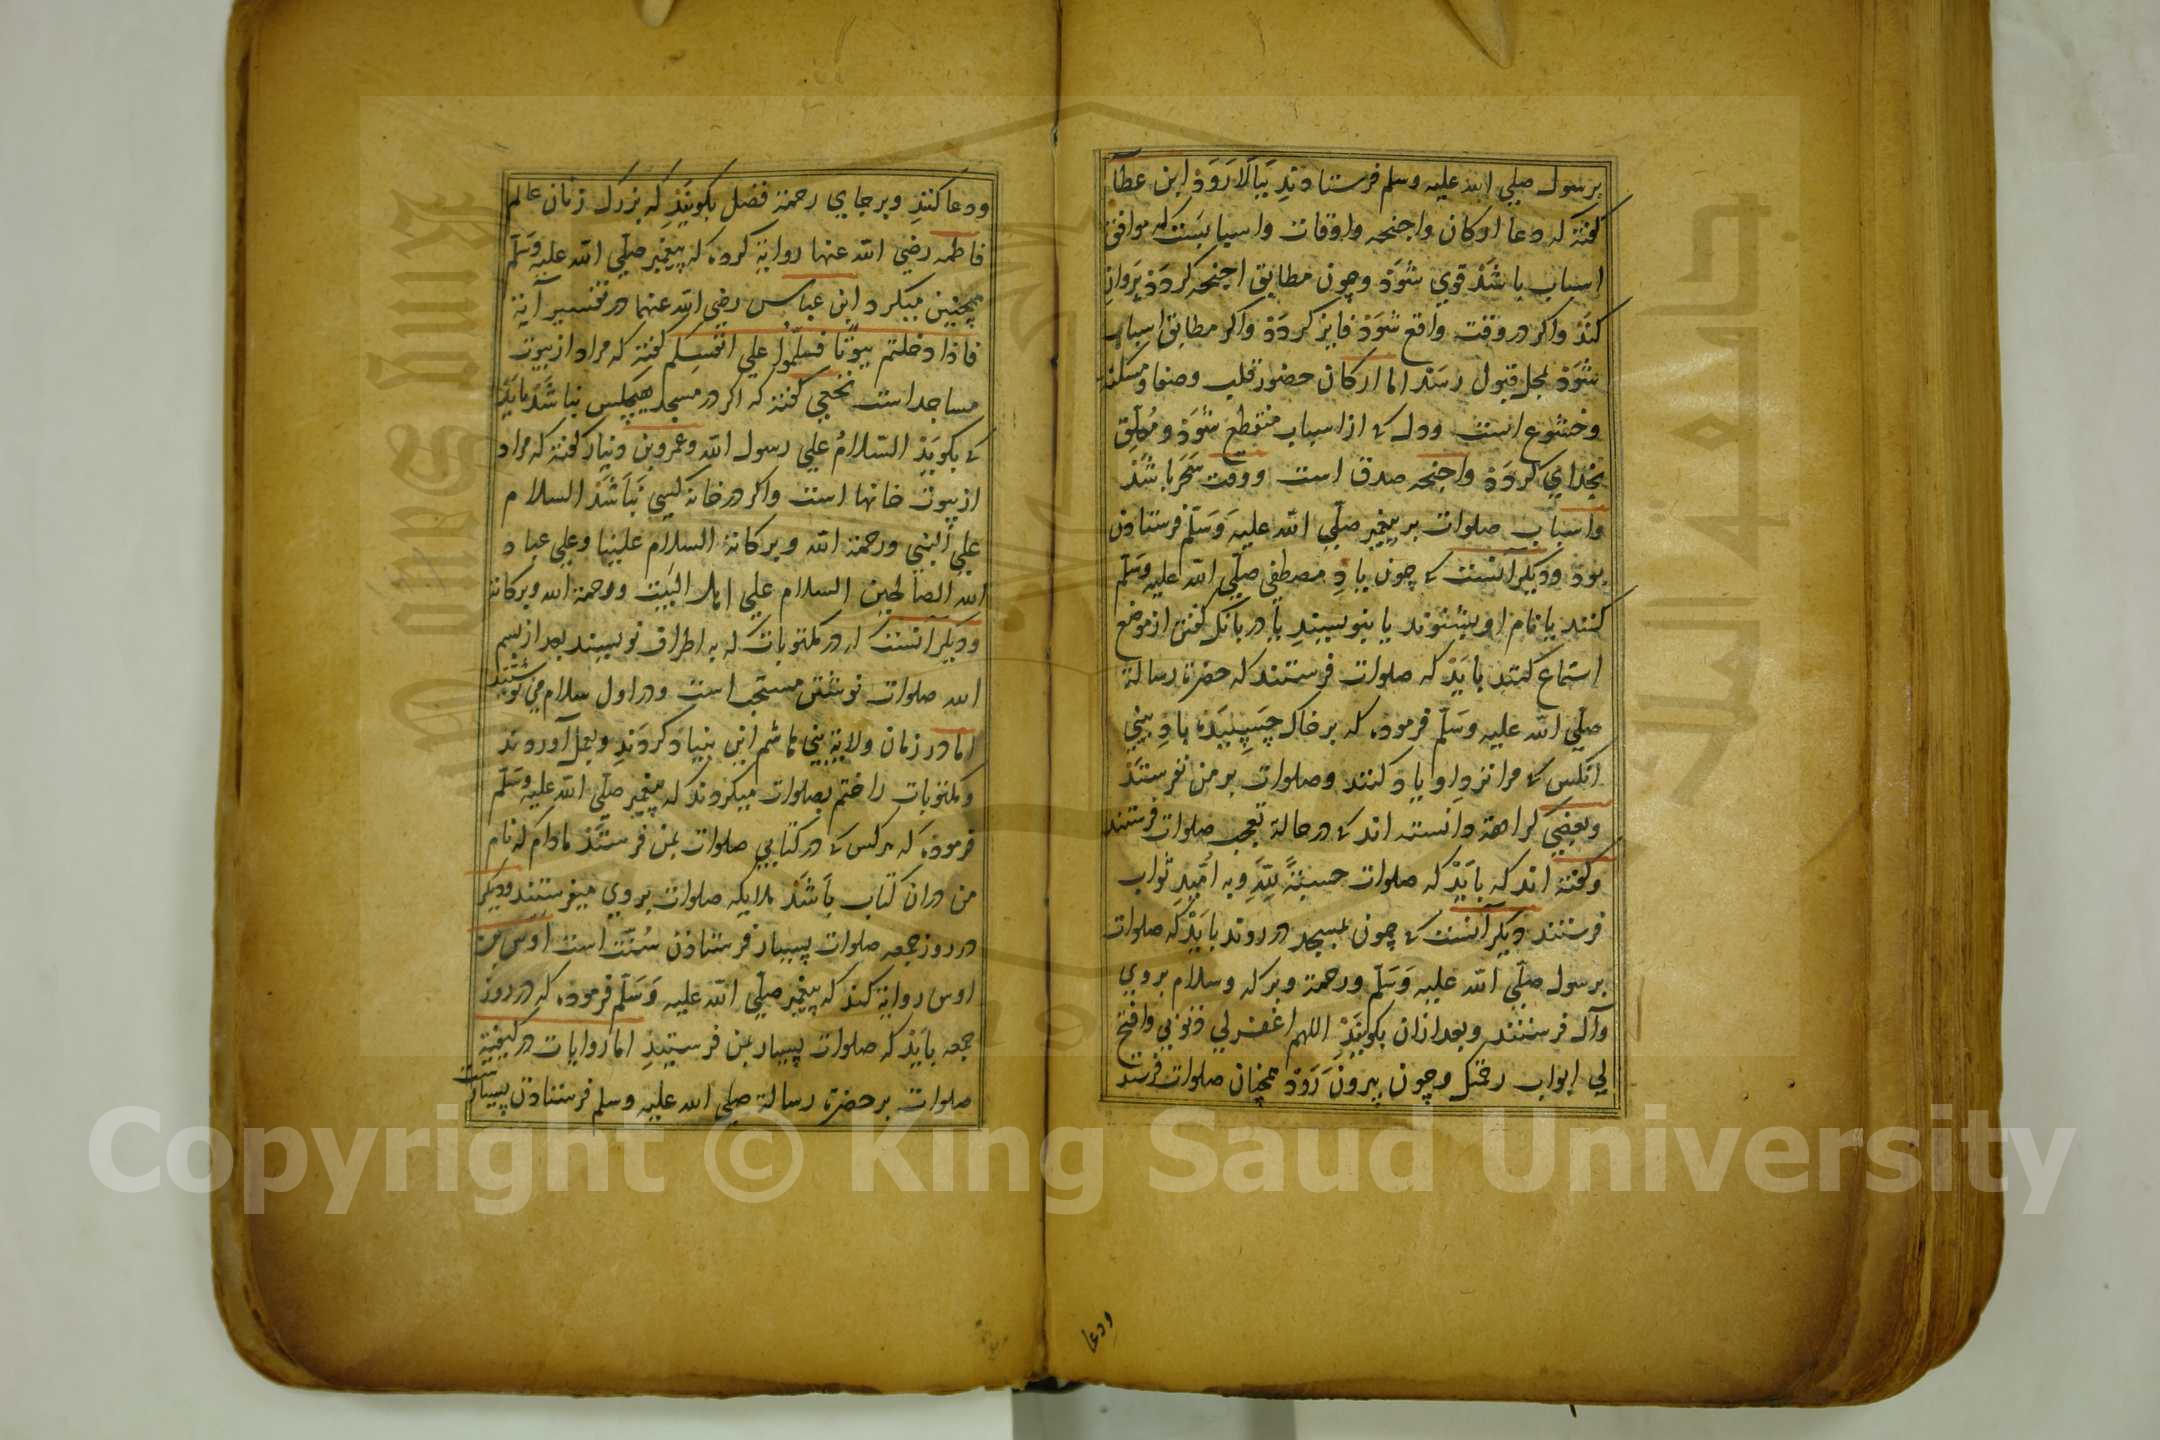 برسول صلي الله عليه وسلم فرستادند ببالا رود ابن عطا
كفته كه دعا اركان واجنحه واوقات واسبابست كه موافق
اسباب باشد قوي شود وچون مطابق اجنحه كردد پروان
كند واكر در وقت واقع شود فايز كردد واكر مطابق اسباب
شود بمحل قبول رسد اما اركان حضور قلب وصفا ومسكنه
وخشوع است ودل كه از اسباب منقطع شود ومعلق
بخداي كردد واجنحه صدق است ووقت سحر باشد
واسباب صلوات بر پيغمبر صلي الله عليه وسلم فرستادن
بود وديكر آنست كه چون ياد مصطفي صلي الله عليه وسلم
كنند يا نام او بشنوند يا بنويسند يا در بانك كفتن از موضع
استماع كنند بايد كه صلوات فرستند كه حضرة رسالة
صلي الله عليه وسلم فرموده كه بر خاك چسپيده باد بيني
انكس كه مرا نزد او ياد كنند وصلوات بر من نفرستد
وبعضي كراهة دانسته اند كه در حالة تعجب صلوات فرستند
وكفته اند كه بايد كه صلوات حسبة لله وبه اميد ثواب
فرستند ديكر آنست كه چون بمسجد در روند بايد كه صلوات
برسول صلي الله عليه وسلم ورحمة وبركه وسلام بروي
وآل فرستند وبعد ازان بكويند اللهم اغفر لي ذنوبي وافتح
لي ابواب رحمتك وچون بيرون رود همچنان صلوات فرستد
ودعا
ودعا كنند وبر جاي رحمة فضل بكويند كه بزرك زنان عالم
فاطمه رضي الله عنها رواية كرده كه پيغمبر صلي الله عليه وسلم
همچنين ميكرد ابن عباس رضي الله عنهما در تفسير آية
فاذا دخلتم بيوتا فسلموا علي انفسكم كفته كه مراد از بيوت
مساجد است نخعي كفته كه اكر در مسجد هيچكس نباشد بايد
كه بكويد السلام علي رسول الله وعمرو بن دينار كفته كه مراد
از بيوت خانها است واكر در خانه كسي نباشد السلام
علي النبي ورحمة الله وبركاته السلام علينا وعلي عباد
الله الصالحين السلام علي اهل البيت ورحمة الله وبركاته
وديكر انست كه در مكتوبات كه به اطراف نويسند بعد از بسم
الله صلوات نوشتن مستحب است ودر اول سلام مي نوشتند
اما در زمان ولاية بني هاشم اين بنياد كردند وبعمل آوردند
ومكتوبات را ختم بصلوات ميكردند كه پيغمبر صلي الله عليه وسلم
فرموده كه هركس كه در كتابي صلوات بمن فرستد مادام كه نام
من دران كتاب باشد ملايكه صلوات بروي ميفرستند وديكر
در روز جمعه صلوات بسيار فرستادن سنت است اوس بن
اوس رواية كند كه پيغمبر صلي الله عليه وسلم فرموده كه در روز
جمعه بايد كه صلوات بسيار بمن فرستيد اما روايات در كيفية
صلوات بر حضرة رسالة صلي الله عليه وسلم فرستادن بسيارست
Copyright © King Saud University